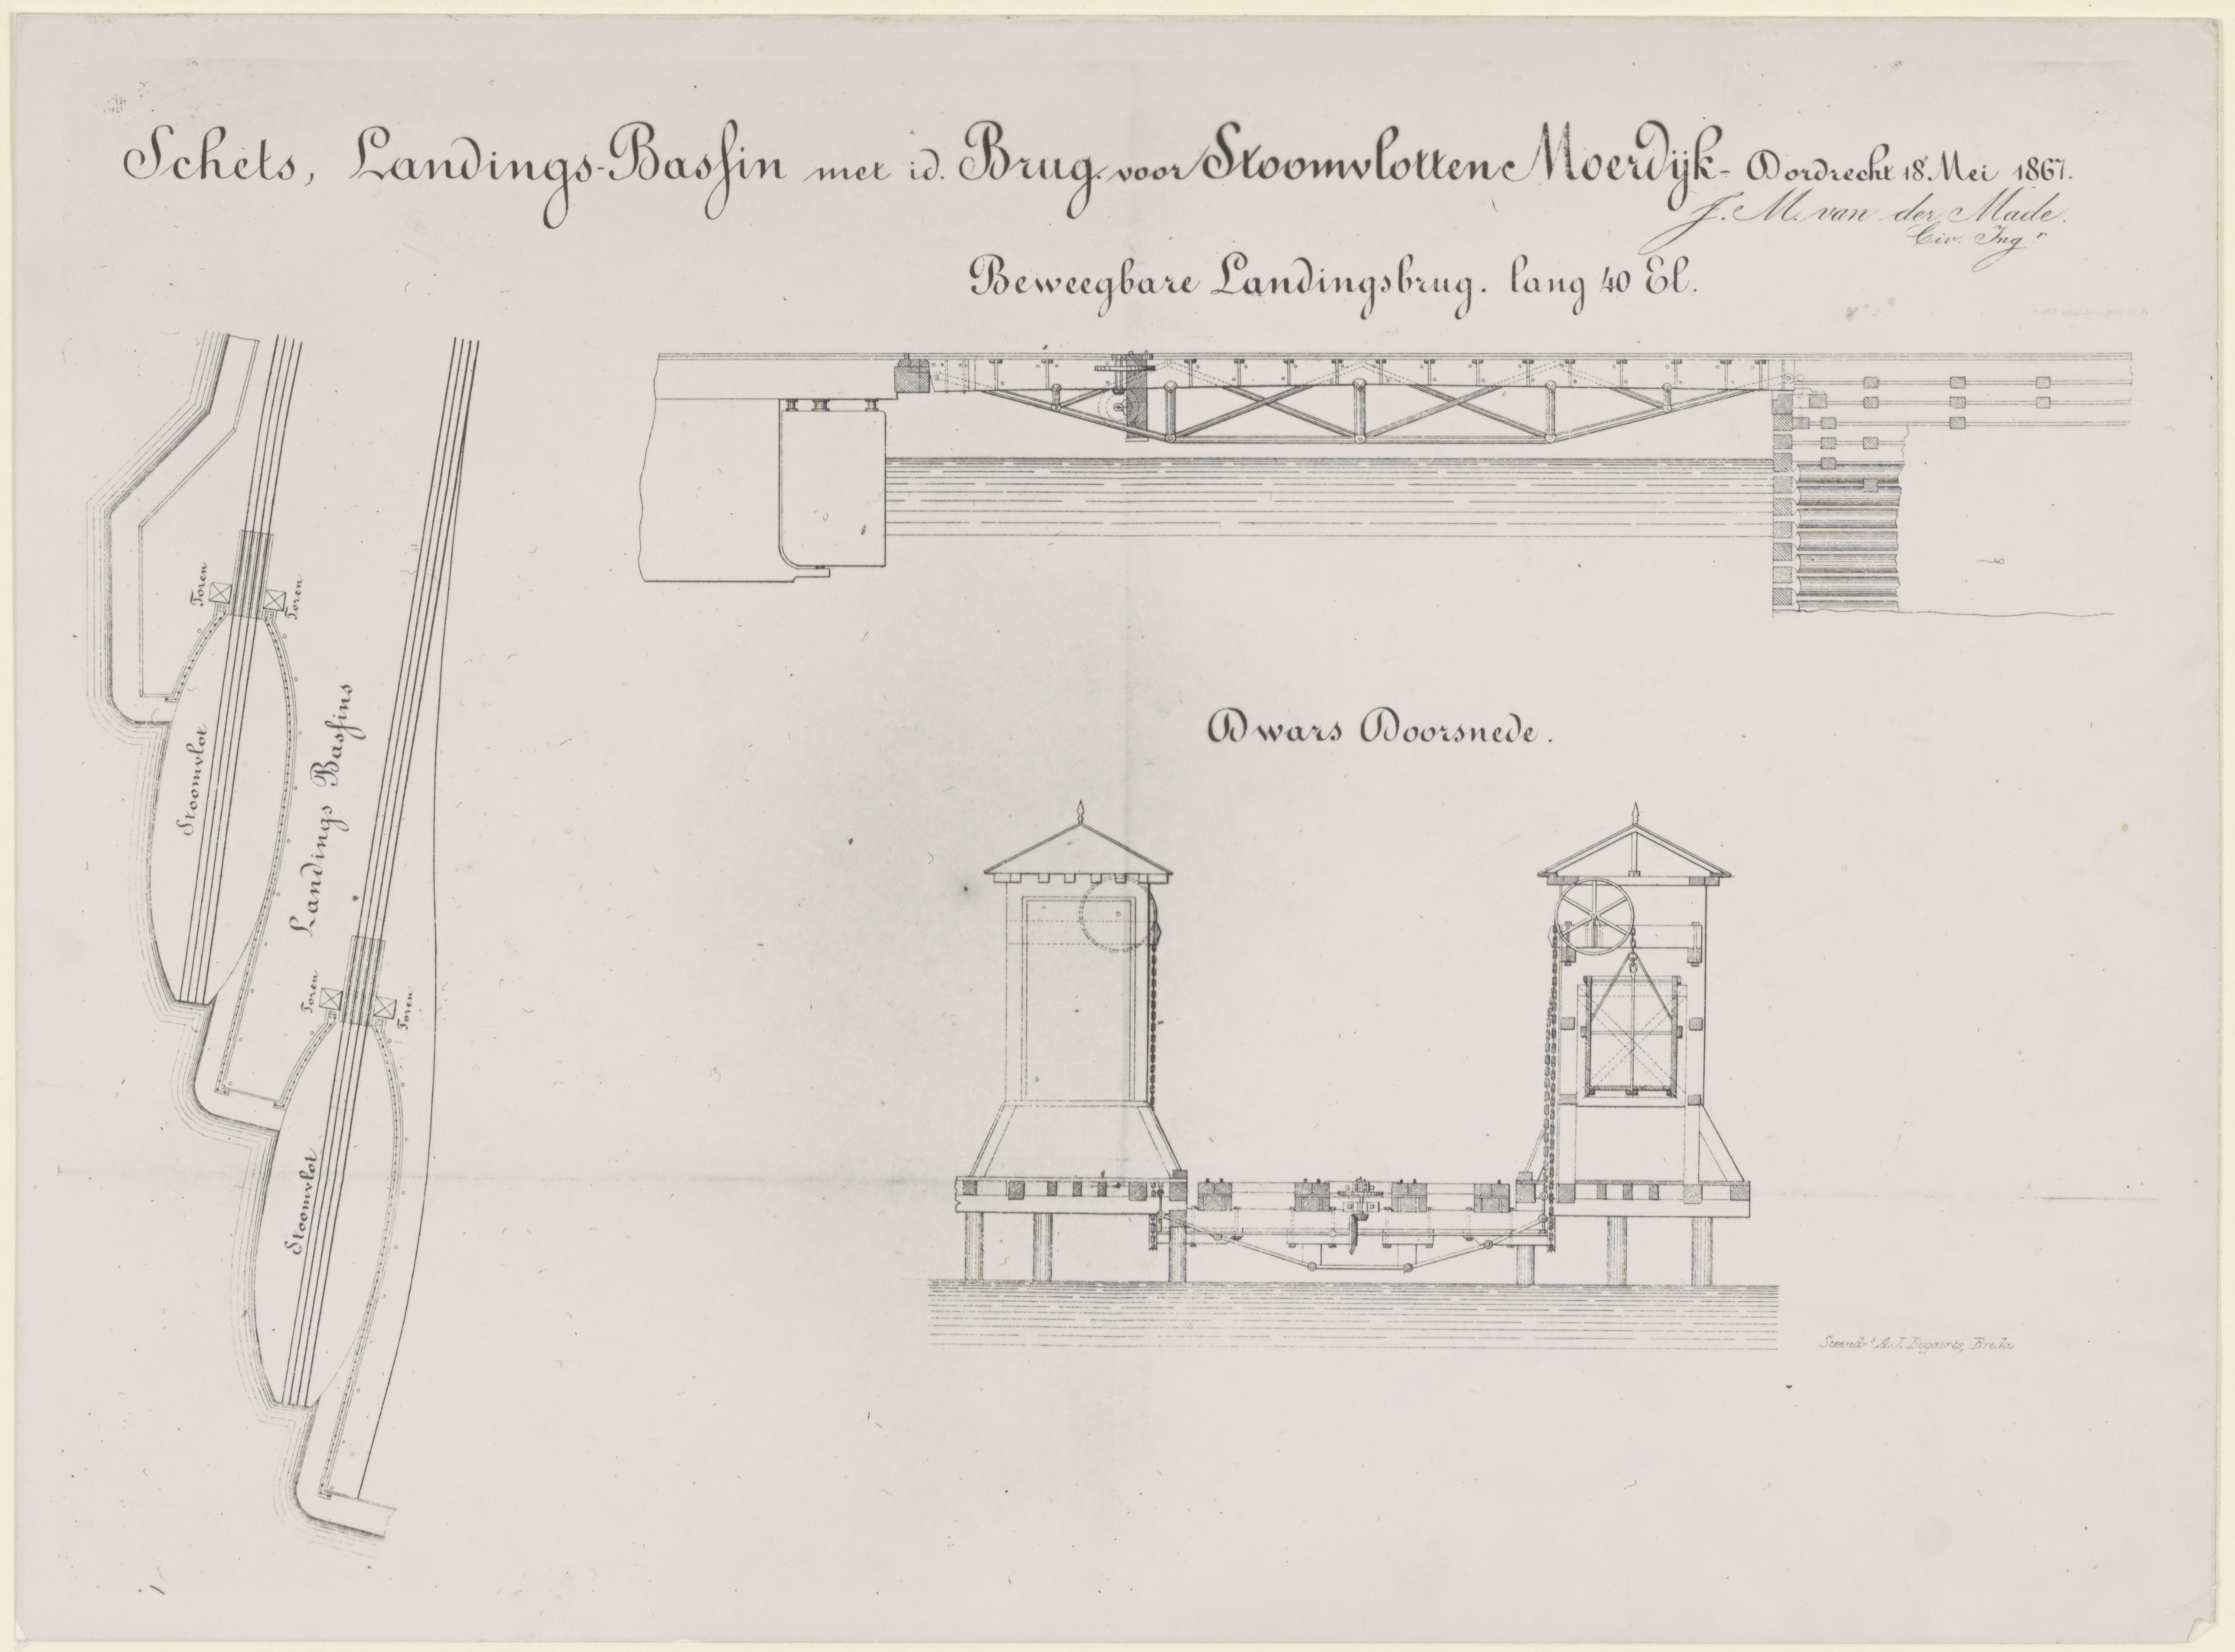 Schets, Landings-Bassin met id. Brug voor Stoomvlotten Moerdijk - Dordrecht 18 Mei 1867.
J. M. van der Made.
Civ. Ingr
Beweegbare Landingsbrug. lang 40 El.
Toren
Toren
Stoomvlot
Landings Bassins
Toren
Toren
Stoomvlot
Dwars Doorsnede.
Steendr. A.J. Bogaerts, Breda